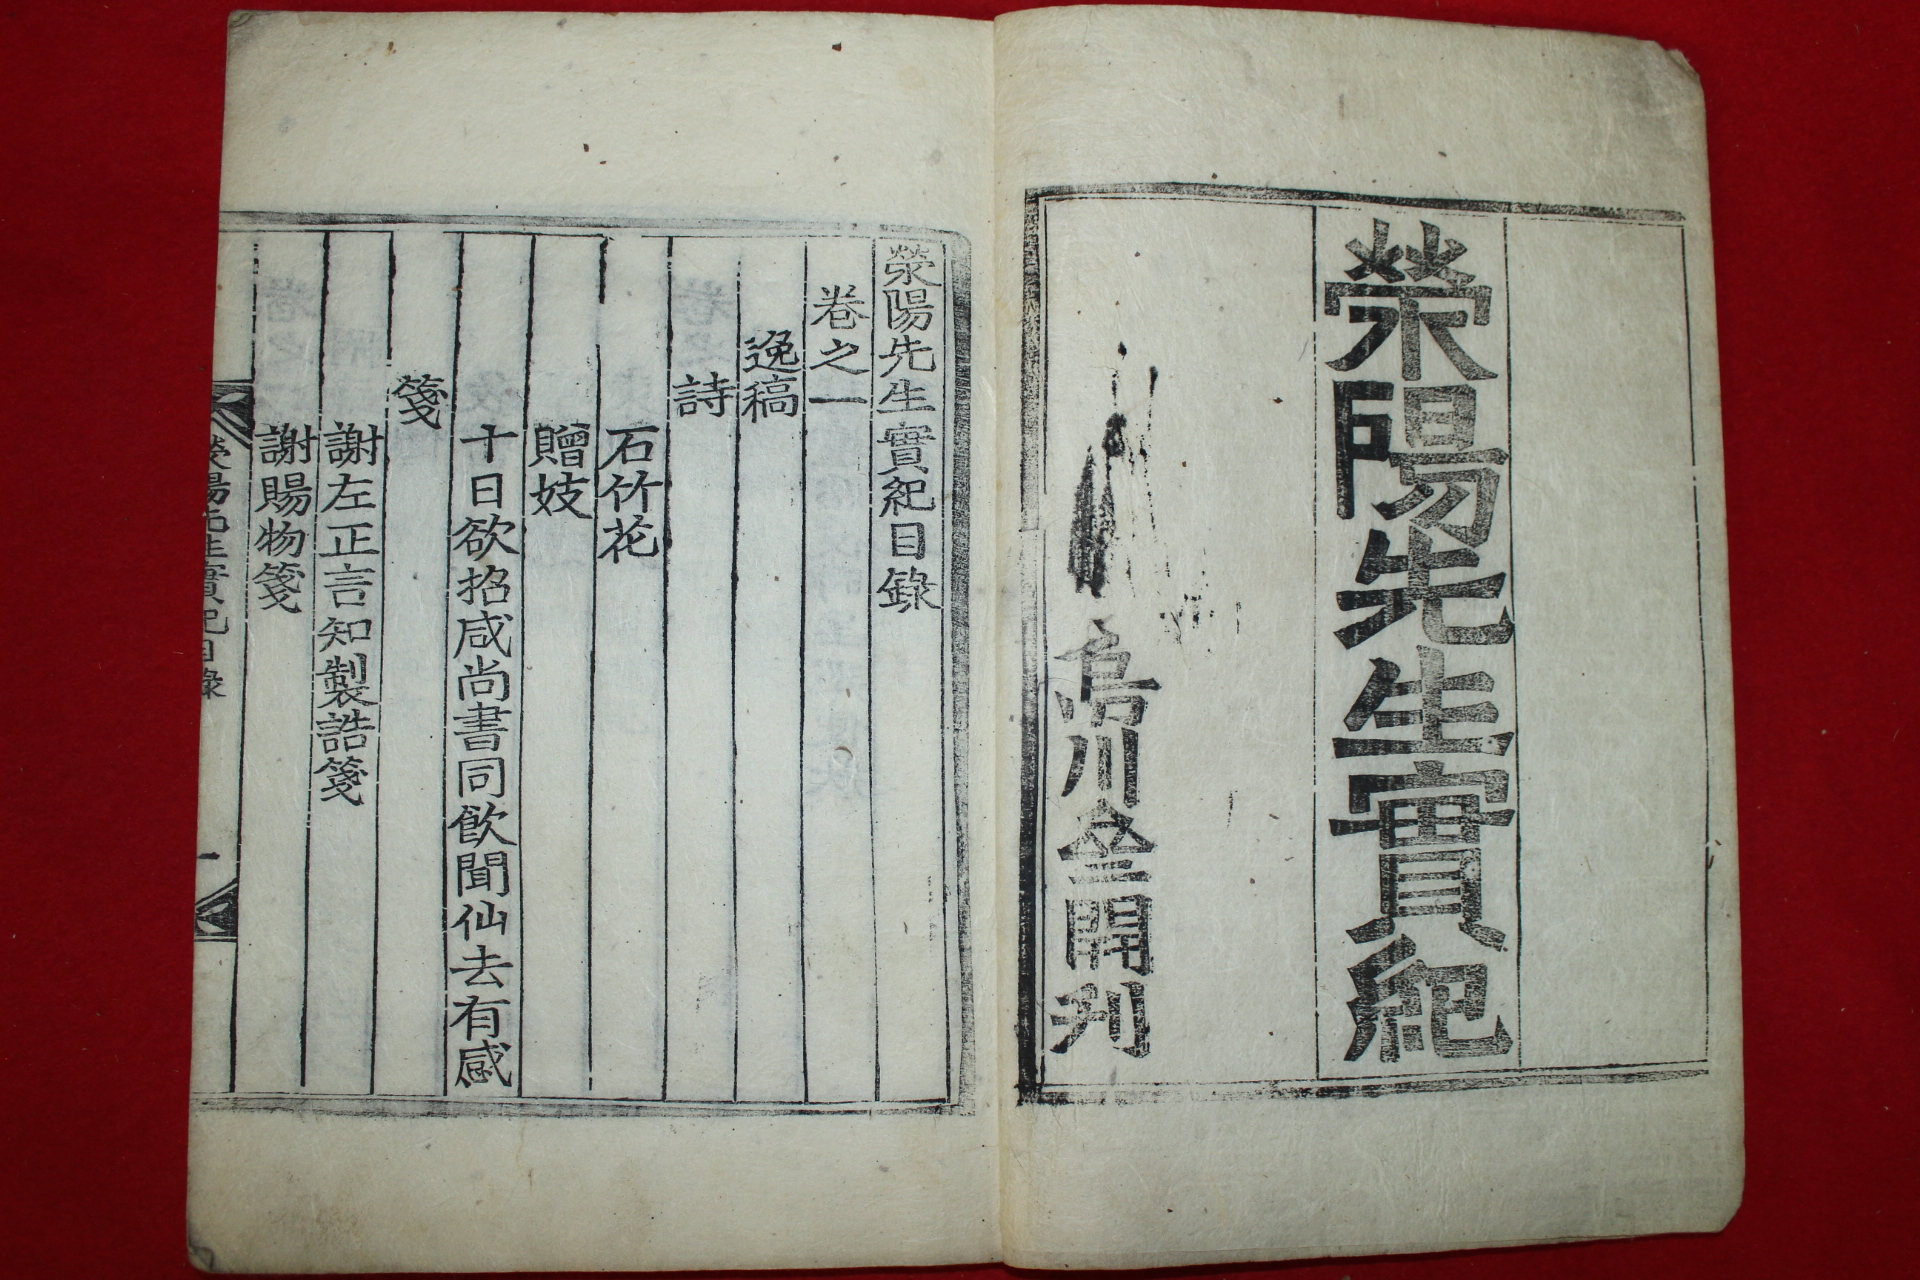 滎陽先生實紀
烏川全開刋
滎陽先生實紀目錄
卷之一
逸稿
詩
石竹花
贈妓
十日欲招咸尚書同飮聞仙去有感
箋
謝左正言知製誥箋
謝賜物箋
滎陽先生實紀目錄
一